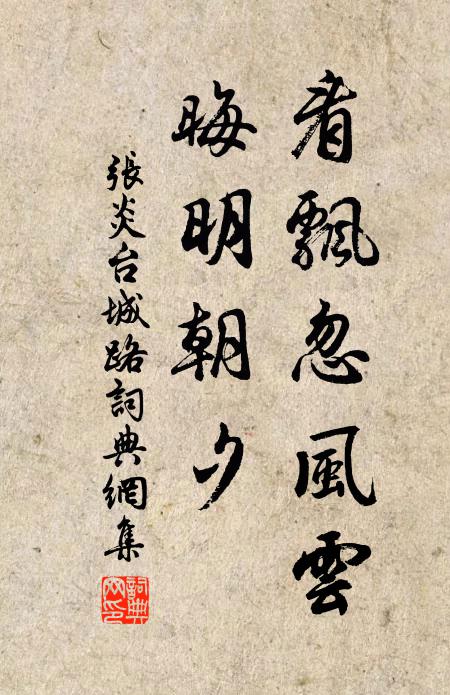 看飄忽風雲
晦明朝夕
張炎台城路詞典網集
詞典